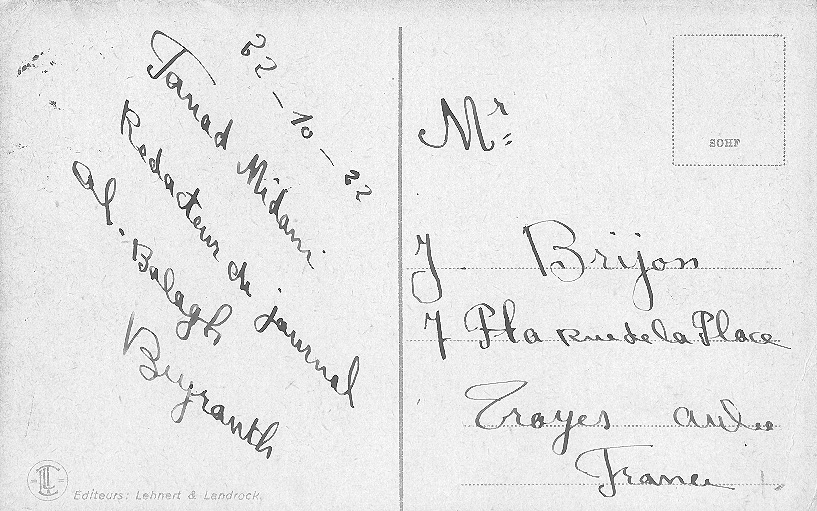 22-10-22
Fanad Midani
Redacteur du journal
al-Balagh
Beyrouth
Mr
J Brijon
7 Pta Rue de la Place
Troyes Aube
France
SOHF
Editeurs: Lehnert & Landrock.